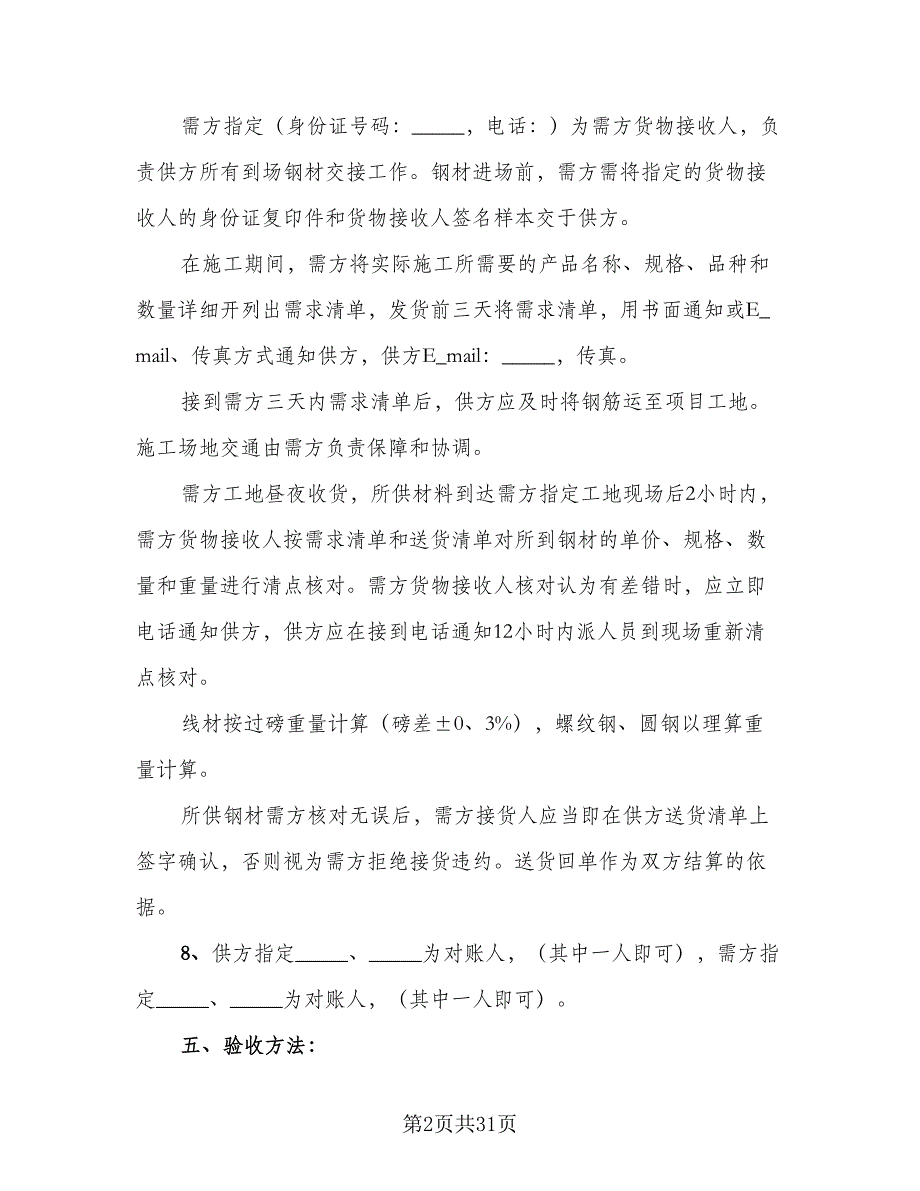 需方指定（身份证号码：_____，电话：）为需方货物接收人，负
责供方所有到场钢材交接工作。钢材进场前，需方需将指定的货物接
收人的身份证复印件和货物接收人签名样本交于供方。
在施工期间，需方将实际施工所需要的产品名称、规格、品种和
数量详细开列出需求清单，发货前三天将需求清单，用书面通知或E_
mail、传真方式通知供方，供方E_mail：_____，传真。
接到需方三天内需求清单后，供方应及时将钢筋运至项目工地。
施工场地交通由需方负责保障和协调。
需方工地昼夜收货，所供材料到达需方指定工地现场后2小时内，
需方货物接收人按需求清单和送货清单对所到钢材的单价、规格、数
量和重量进行清点核对。需方货物接收人核对认为有差错时，应立即
电话通知供方，供方应在接到电话通知12小时内派人员到现场重新清
点核对。
线材按过磅重量计算（磅差±0、3%），螺纹钢、圆钢以理算重
量计算。
所供钢材需方核对无误后，需方接货人应当即在供方送货清单上
签字确认，否则视为需方拒绝接货违约。送货回单作为双方结算的依
据。
8、供方指定_____、_____为对账人，（其中一人即可），需方指
定_____、_____为对账人，（其中一人即可）。
五、验收方法：
第2页共31页